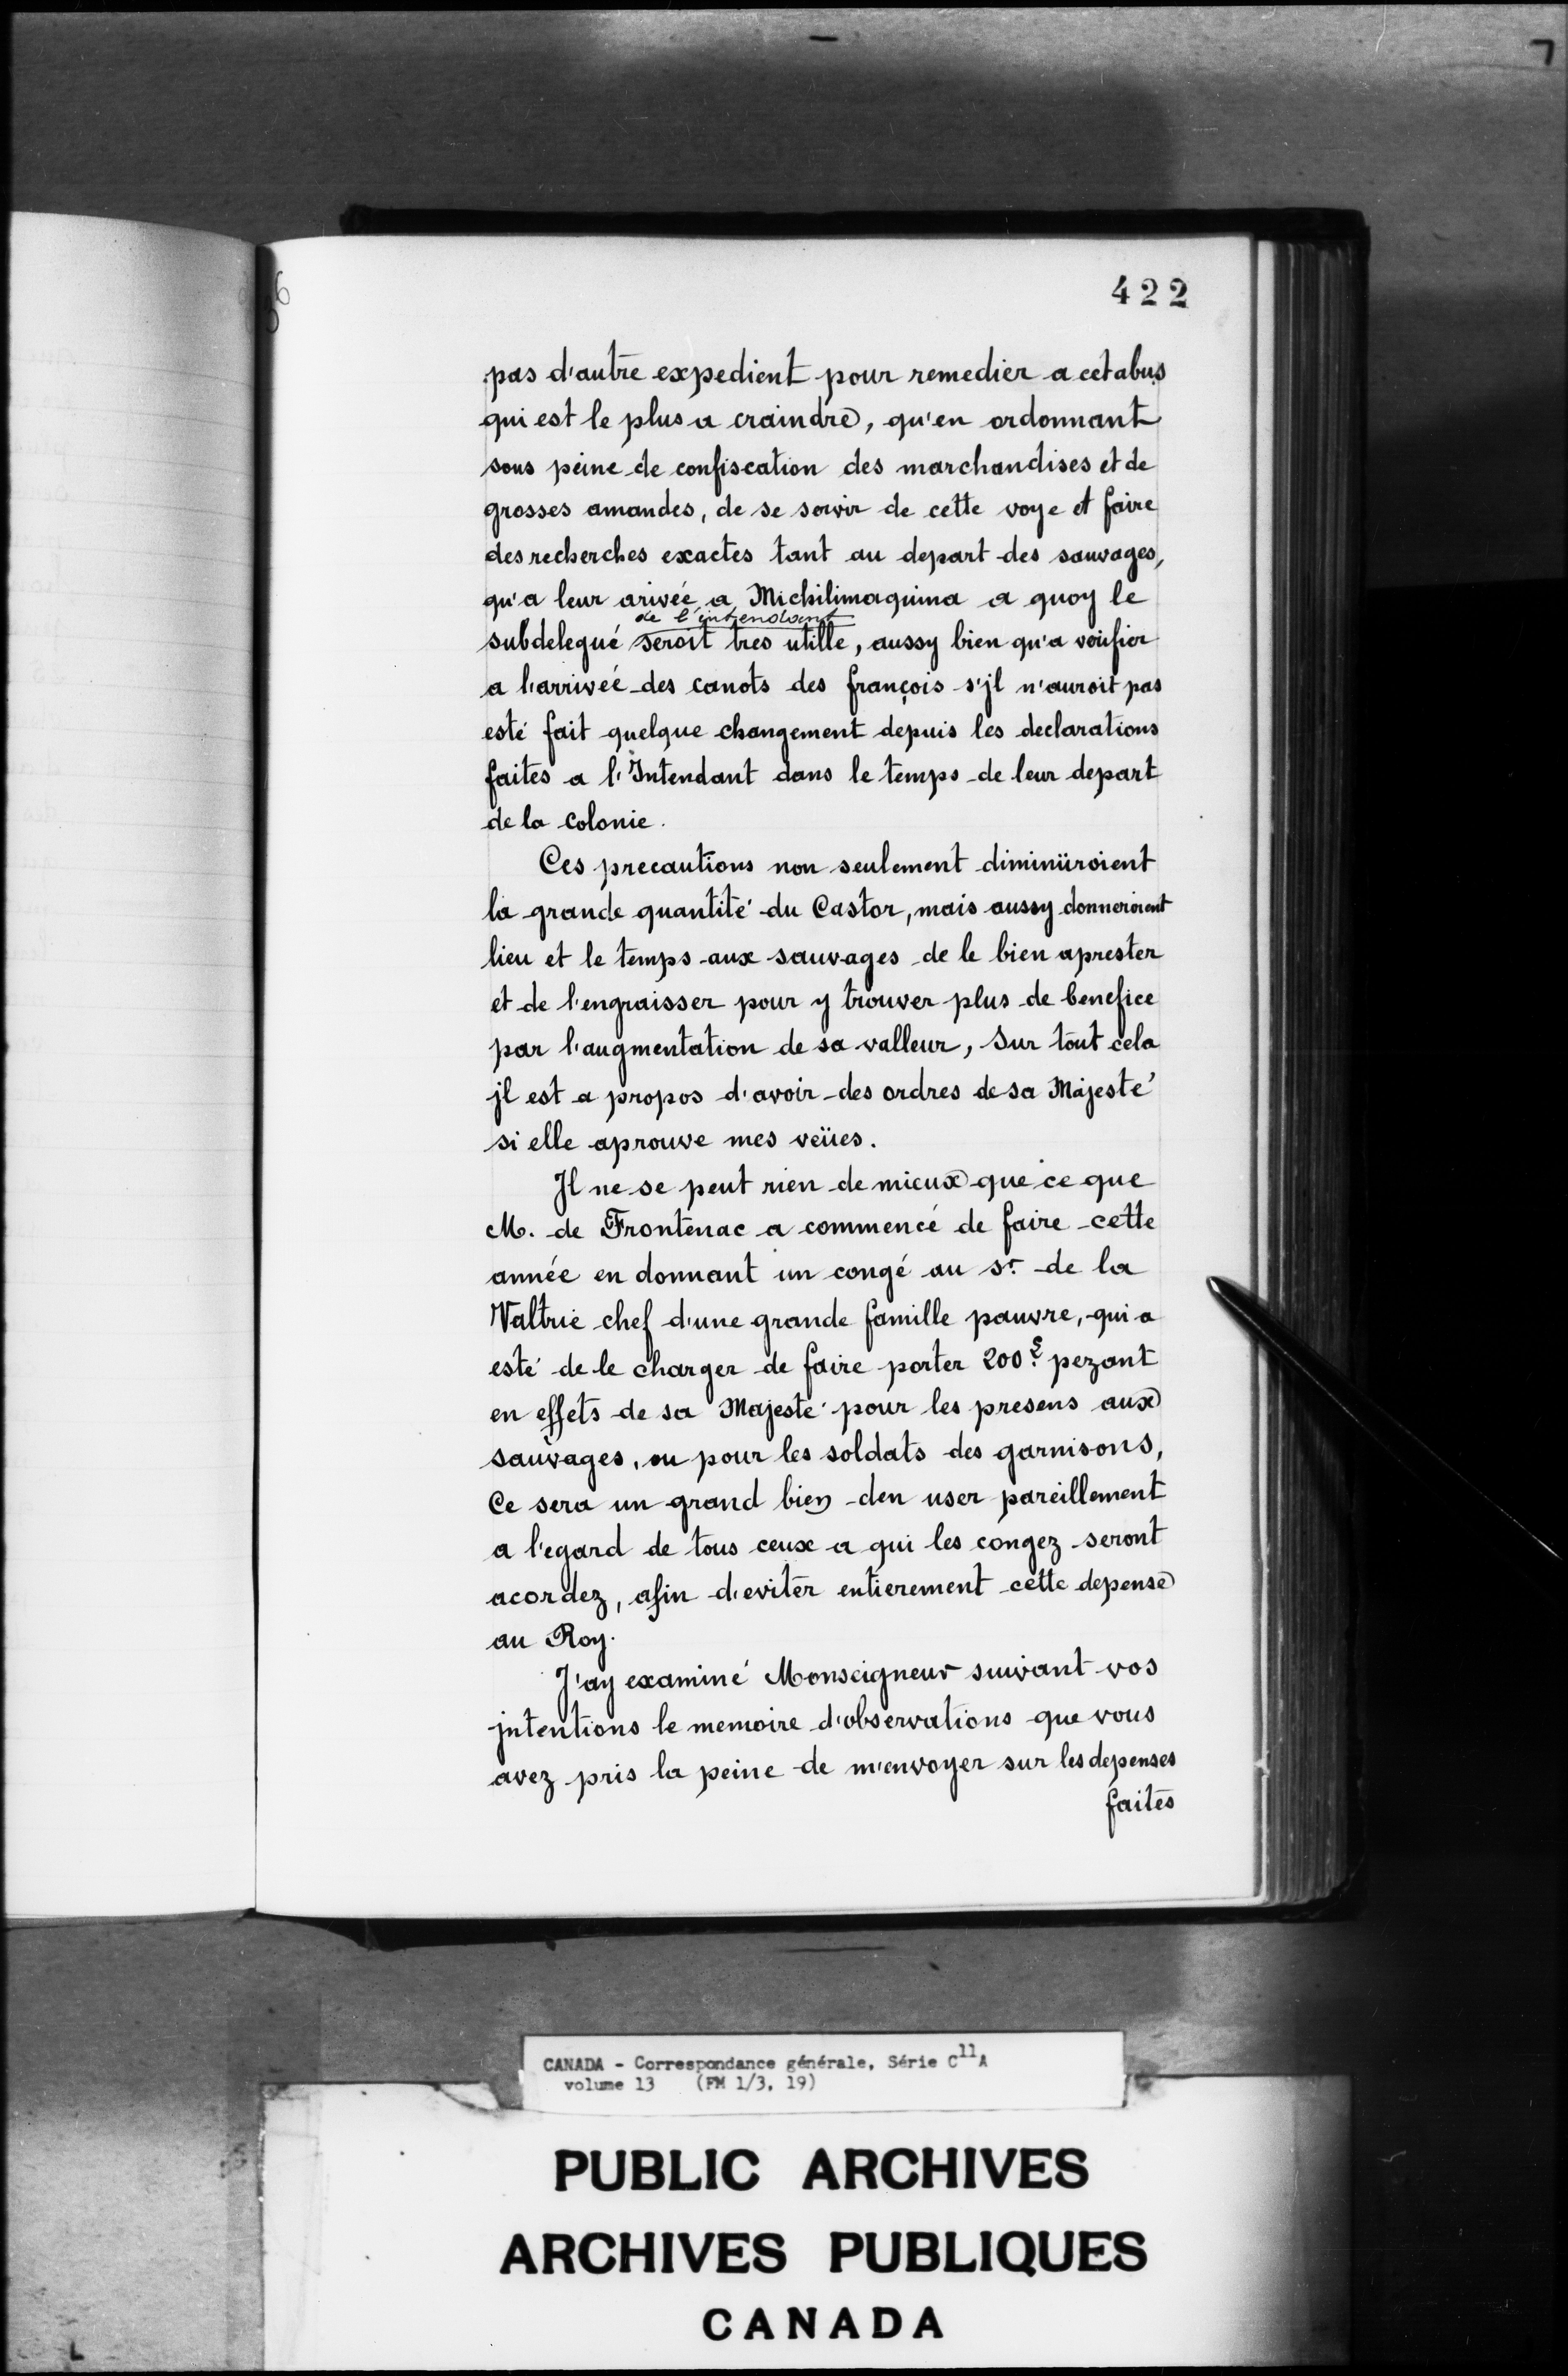 422
pas d'autre expedient pour remedier a cet abus
qui est le plus a craindre, qu'en ordonnant
sous peine de confiscation des marchandises et de
grosses amandes, de se servir de cette voye et faire
des recherches exactes tant au depart des sauvages,
qu'a leur arivée a Michilimaquina a quoy le
de l'intendant
subdelegué seroit tres utille, aussy bien qu'a verifier
a l'arrivée des canots des françois s'jl n'auroit pas
esté fait quelque changement depuis les declarations
faites a l'Intendant dans le temps de leur depart
de la colonie.
Ces precautions non seulement diminüroient
la grande quantité du Castor, mais aussy donneroient
lieu et le temps aux sauvages de le bien aprester
et de l'engraisser pour y trouver plus de benefice
par l'augmentation de sa valleur, Sur tout cela
jl est a propos d'avoir des ordres de sa Majesté
si elle aprouve mes veües.
Il ne se peut rien de mieux que ce que
M. de Frontenac a commencé de faire cette
année en donnant un congé au Sr. de la
Valtrie chef d'une grande famille pauvre, qui a
esté de le charger de faire porter 200 pezant
en effets de sa Majesté pour les presens aux
sauvages, ou pour les soldats des garnisons,
Ce sera un grand bien den user pareillement
a l'egard de tous ceux a qui les congez seront
acordez, afin d'eviter entierement cette depense
au Roy.
J'ay examiné Monseigneur suivant vos
jntentions le memoire d'observations que vous
avez pris la peine de m'envoyer sur les depenses
faites
CANADA - Correspondance générale, Série C11A
volume 13 (FM 1/3, 19)
PUBLIC ARCHIVES
ARCHIVES PUBLIQUES
CANADA